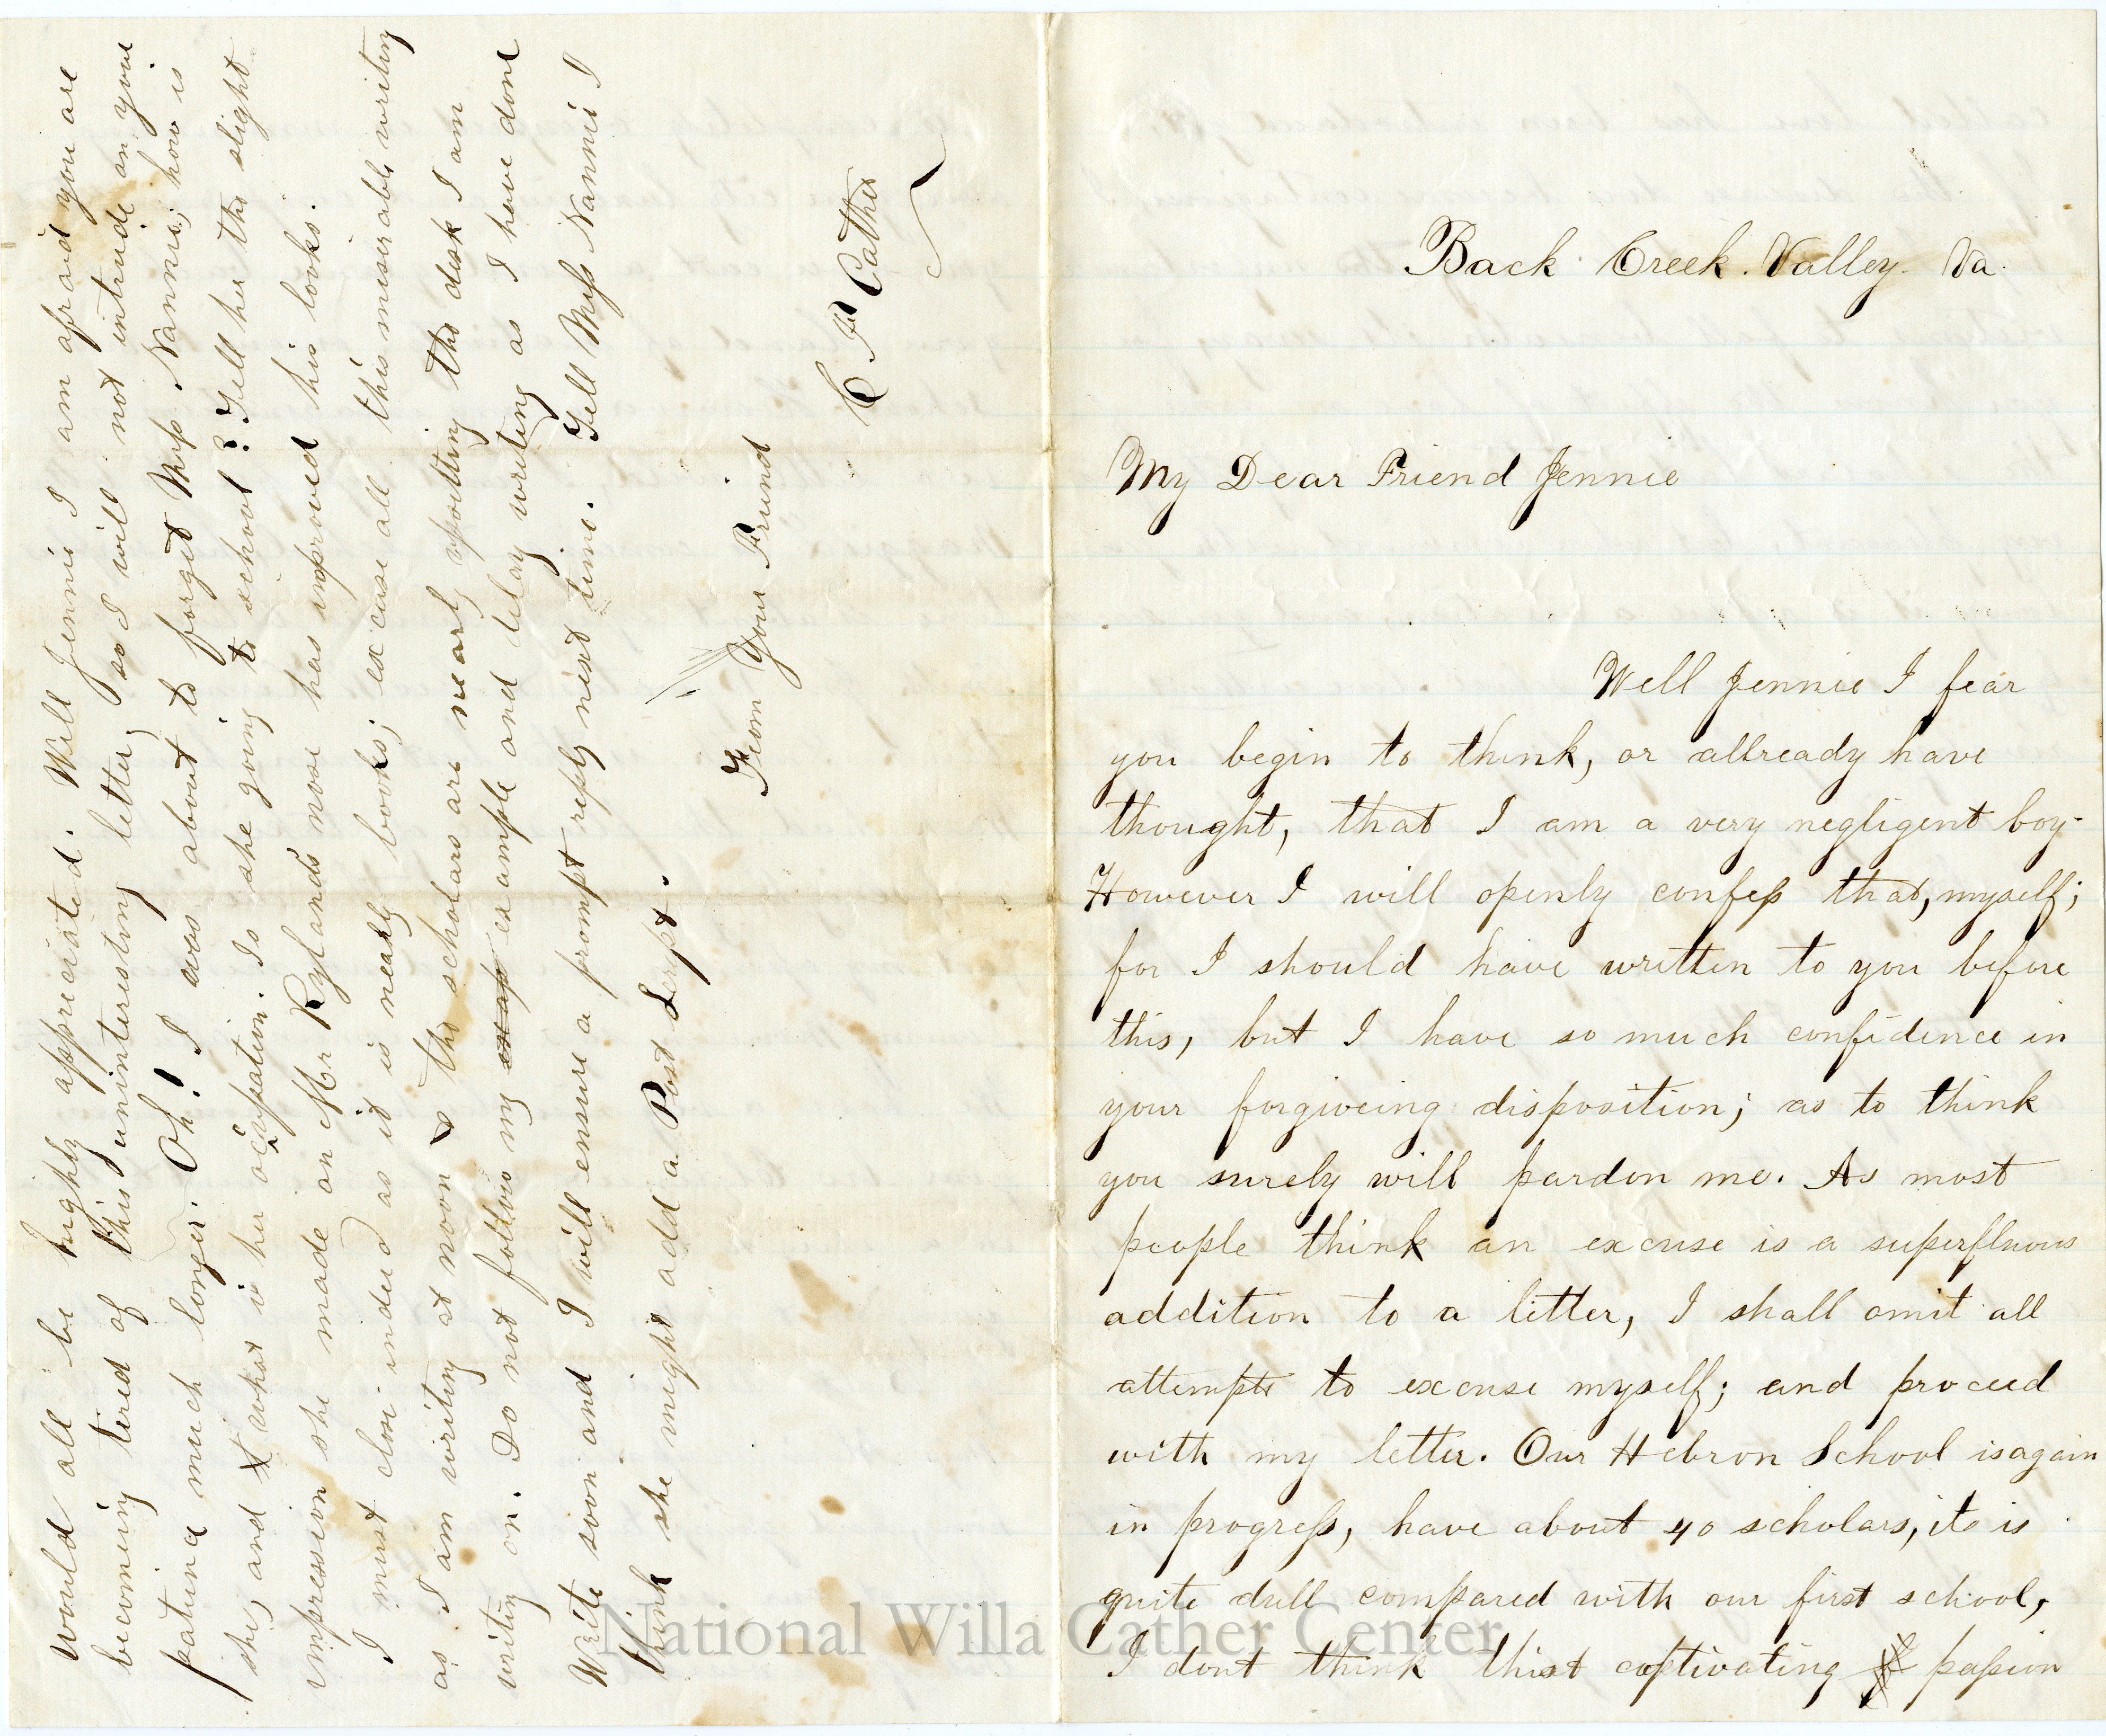 Back Creek. Valley. Va.
My Dear Friend Jennie
Well Jennie I fear
you begin to think, or allready have
thought, that I am a very negligent boy.
However I will openly confess that, myself;
for I should have written to you before
this, but I have so much confidence in
your forgiveing disposition; as to think
you surely will pardon me. As most
people think an excuse is a superfluous
addition to a letter, I shall omit all
attempts to excuse myself; and proceed
with my letter. Our Hebron School is again
in progress, have about 40 scholars, it is
quite dull compared with our first school,
I dont think that captivating passion
would all be highly appreciated. Well Jennie I am afraid you are
becoming tired of this uninteresting letter, so I will not intrude on your
patience much longer. Oh! I was about to forget Miss Nannie; how is
she, and what is her ocupation. Is she going to school? Tell her the slight
impression she made on Mr Rylands nose has improved his looks.
I must close indeed as it is nearly books; excuse all this miserable writing
as I am writing at noon & the scholars are nearly upsetting the desk I am
writing on. Do not follow my exap example and delay writing as I have done
Write soon and I will ensure a prompt reply next time. Tell Miss Nannie I
think she might add a Post Script.
From Your Friend
C F Cather
National Willa Cather Center